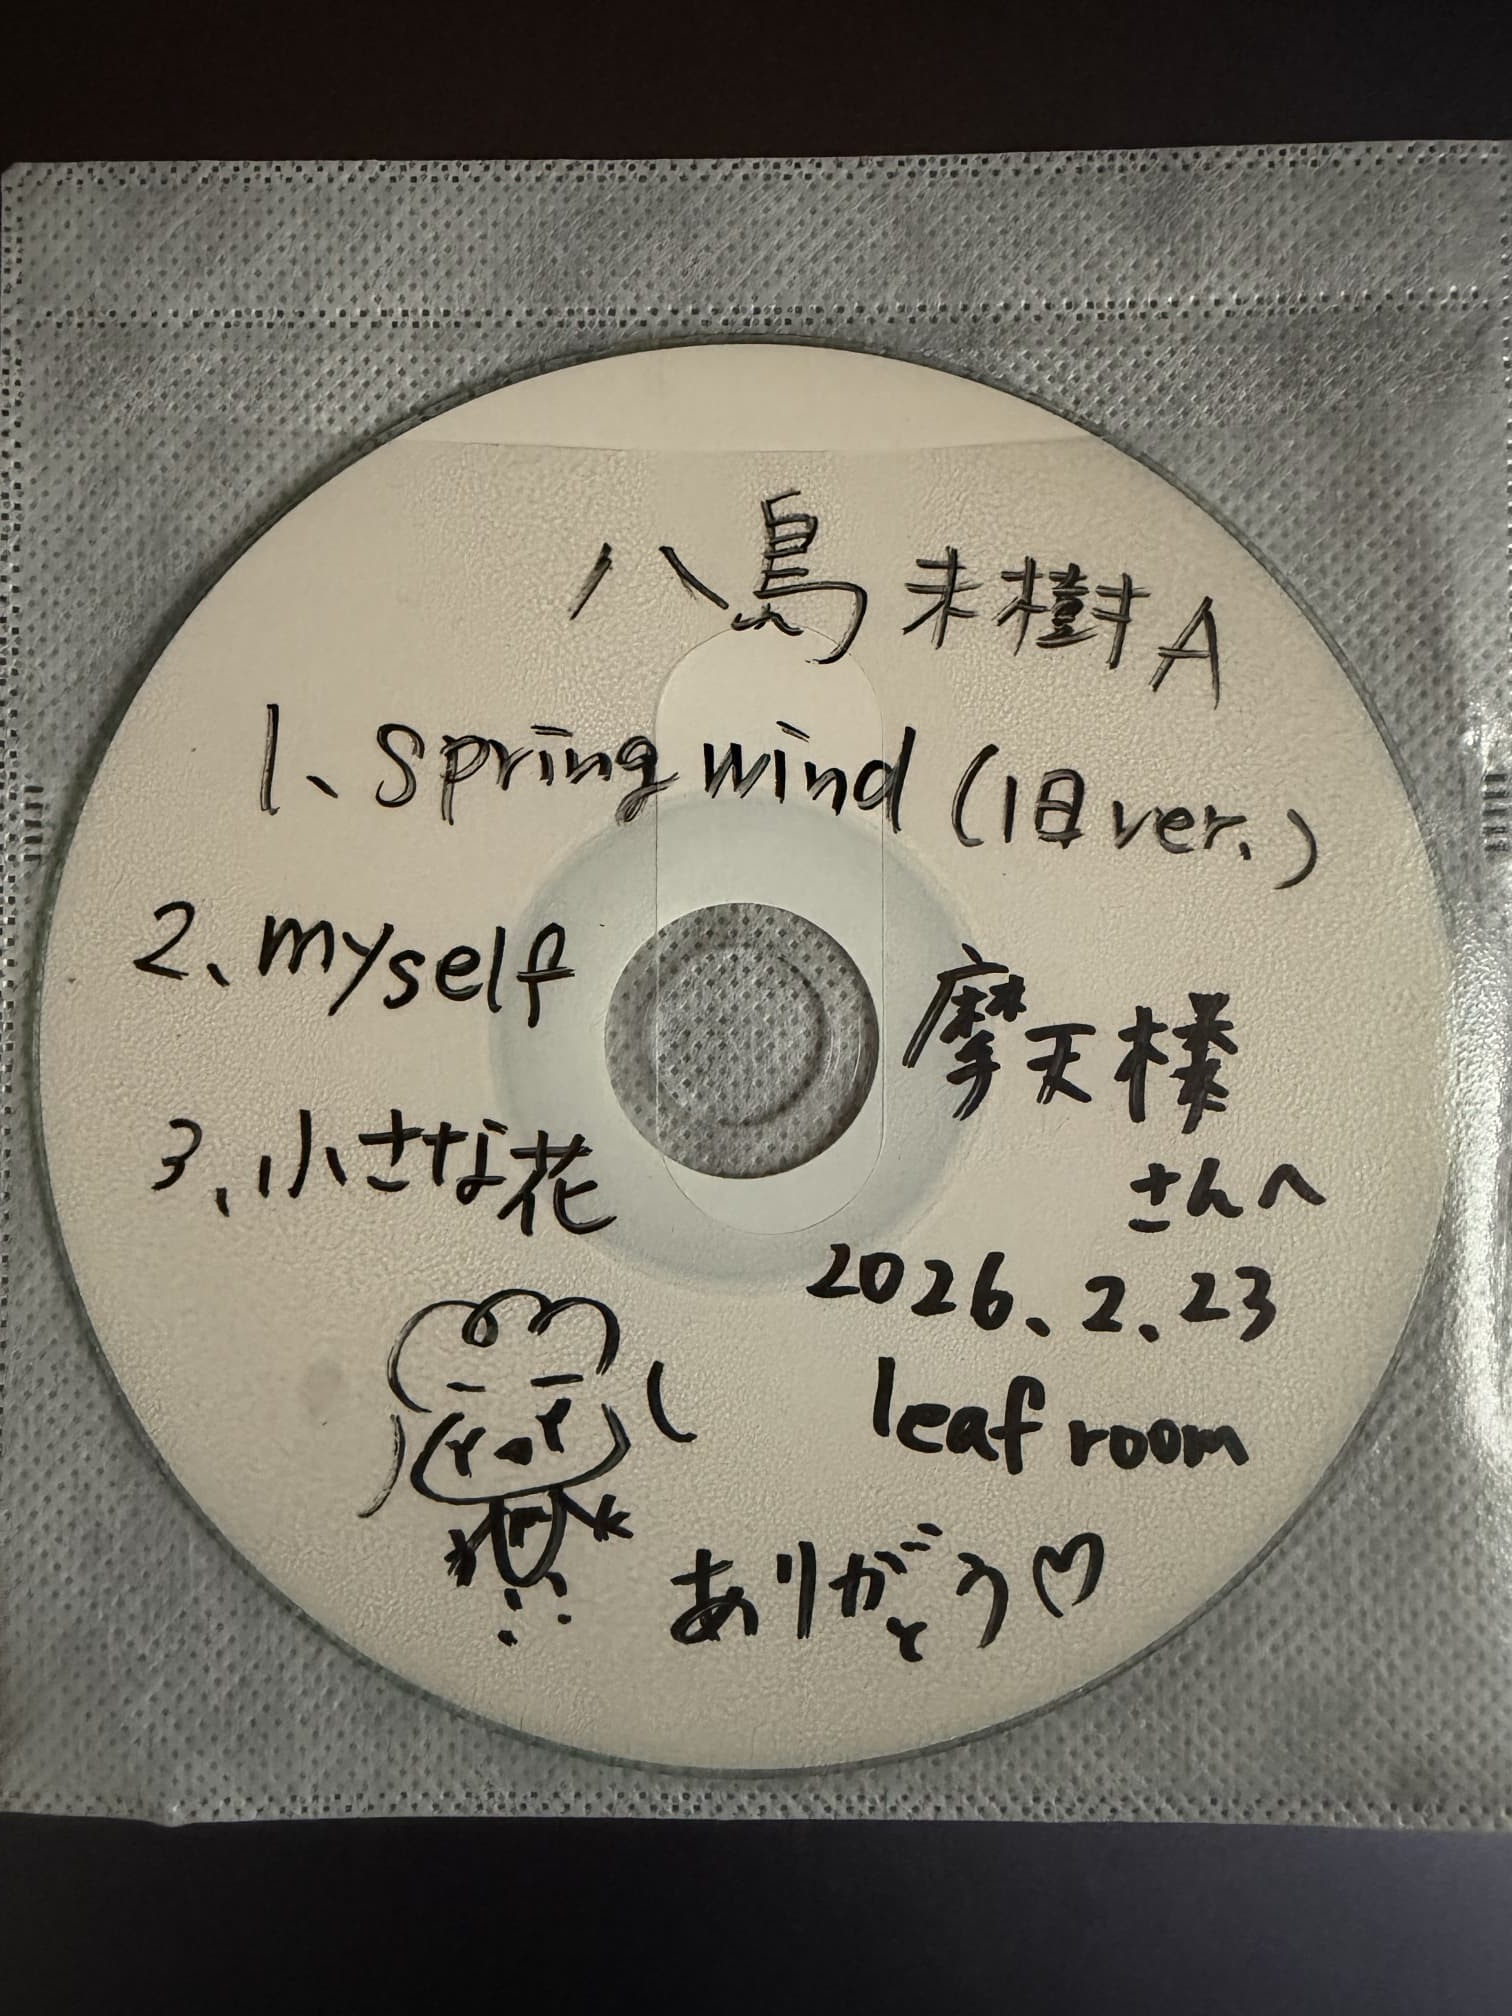 八島未樹 A
1、Spring wind (旧ver.)
2、myself
3、小さな花
摩天様
さんへ
2026.2.23
leaf room
ありがとう♡